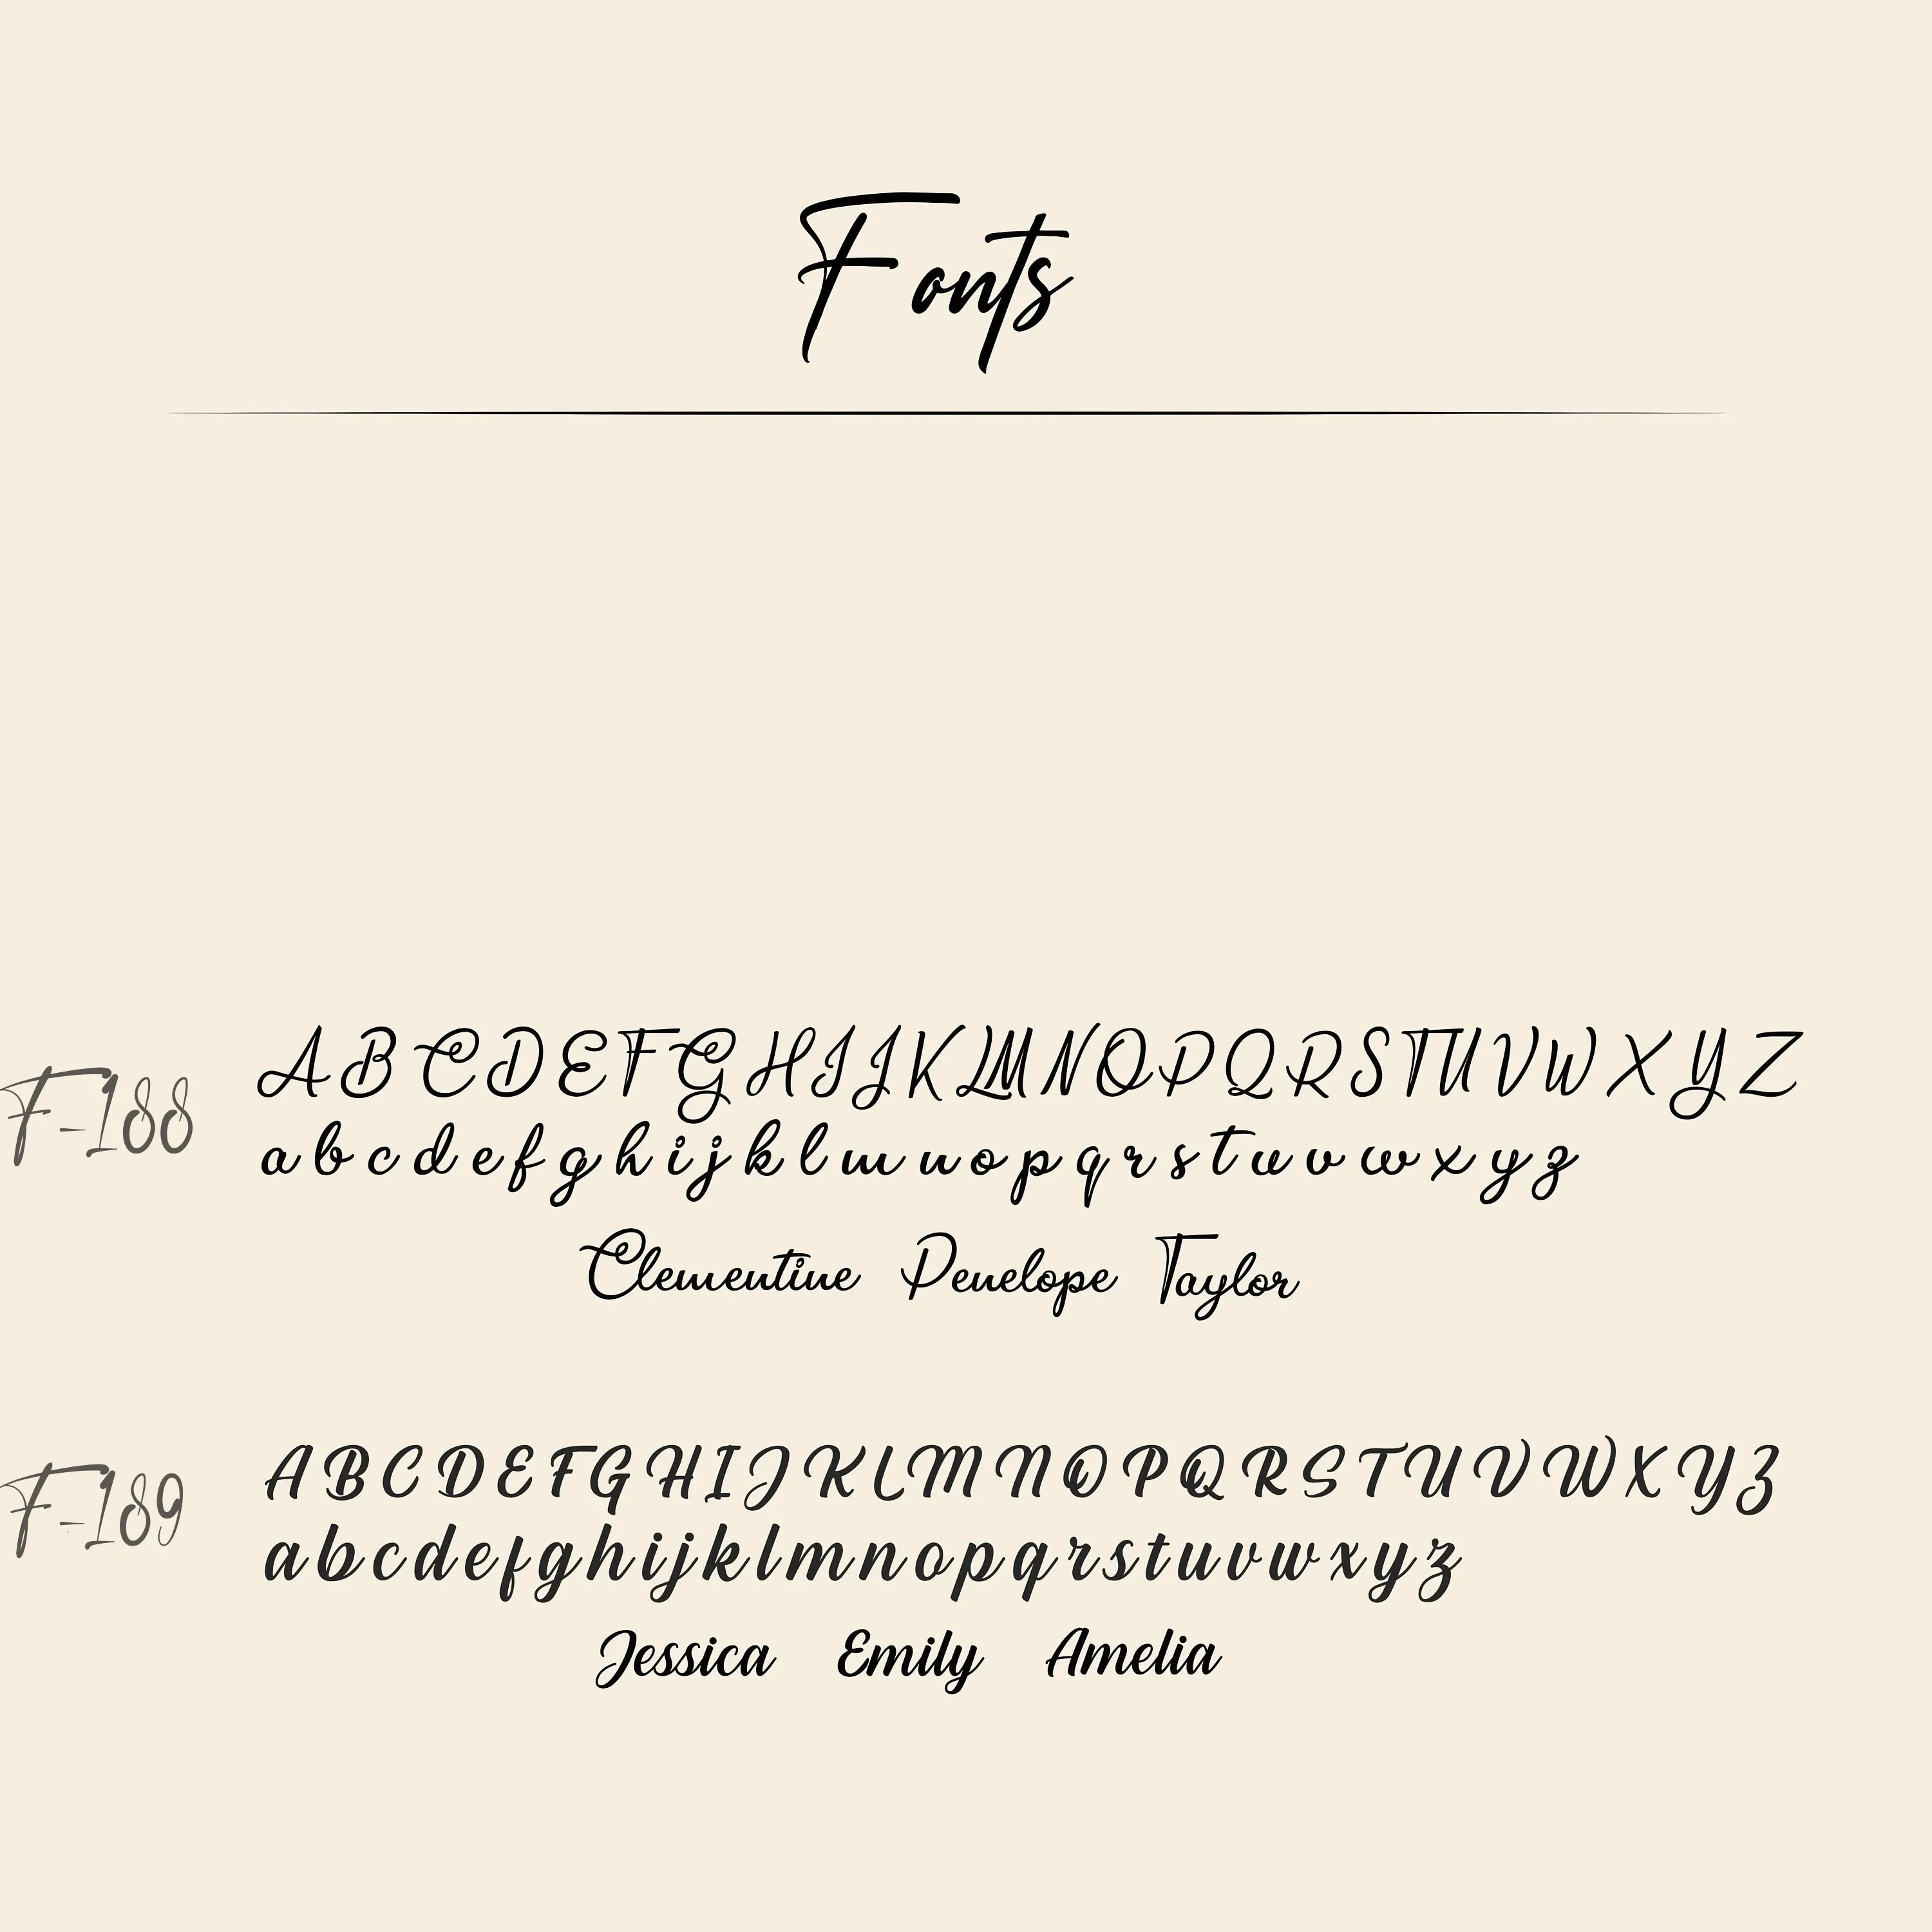 Fonts
F-188
A B C D E F G H I J K L M N O P Q R S T U V W X Y Z
a b c d e f g h i j k l m n o p q r s t u v w x y z
Clementine Penelope Taylor
F-189
A B C D E F G H I J K L M N O P Q R S T U V W X Y Z
a b c d e f g h i j k l m n o p q r s t u v w x y z
Jessica Emily Amelia